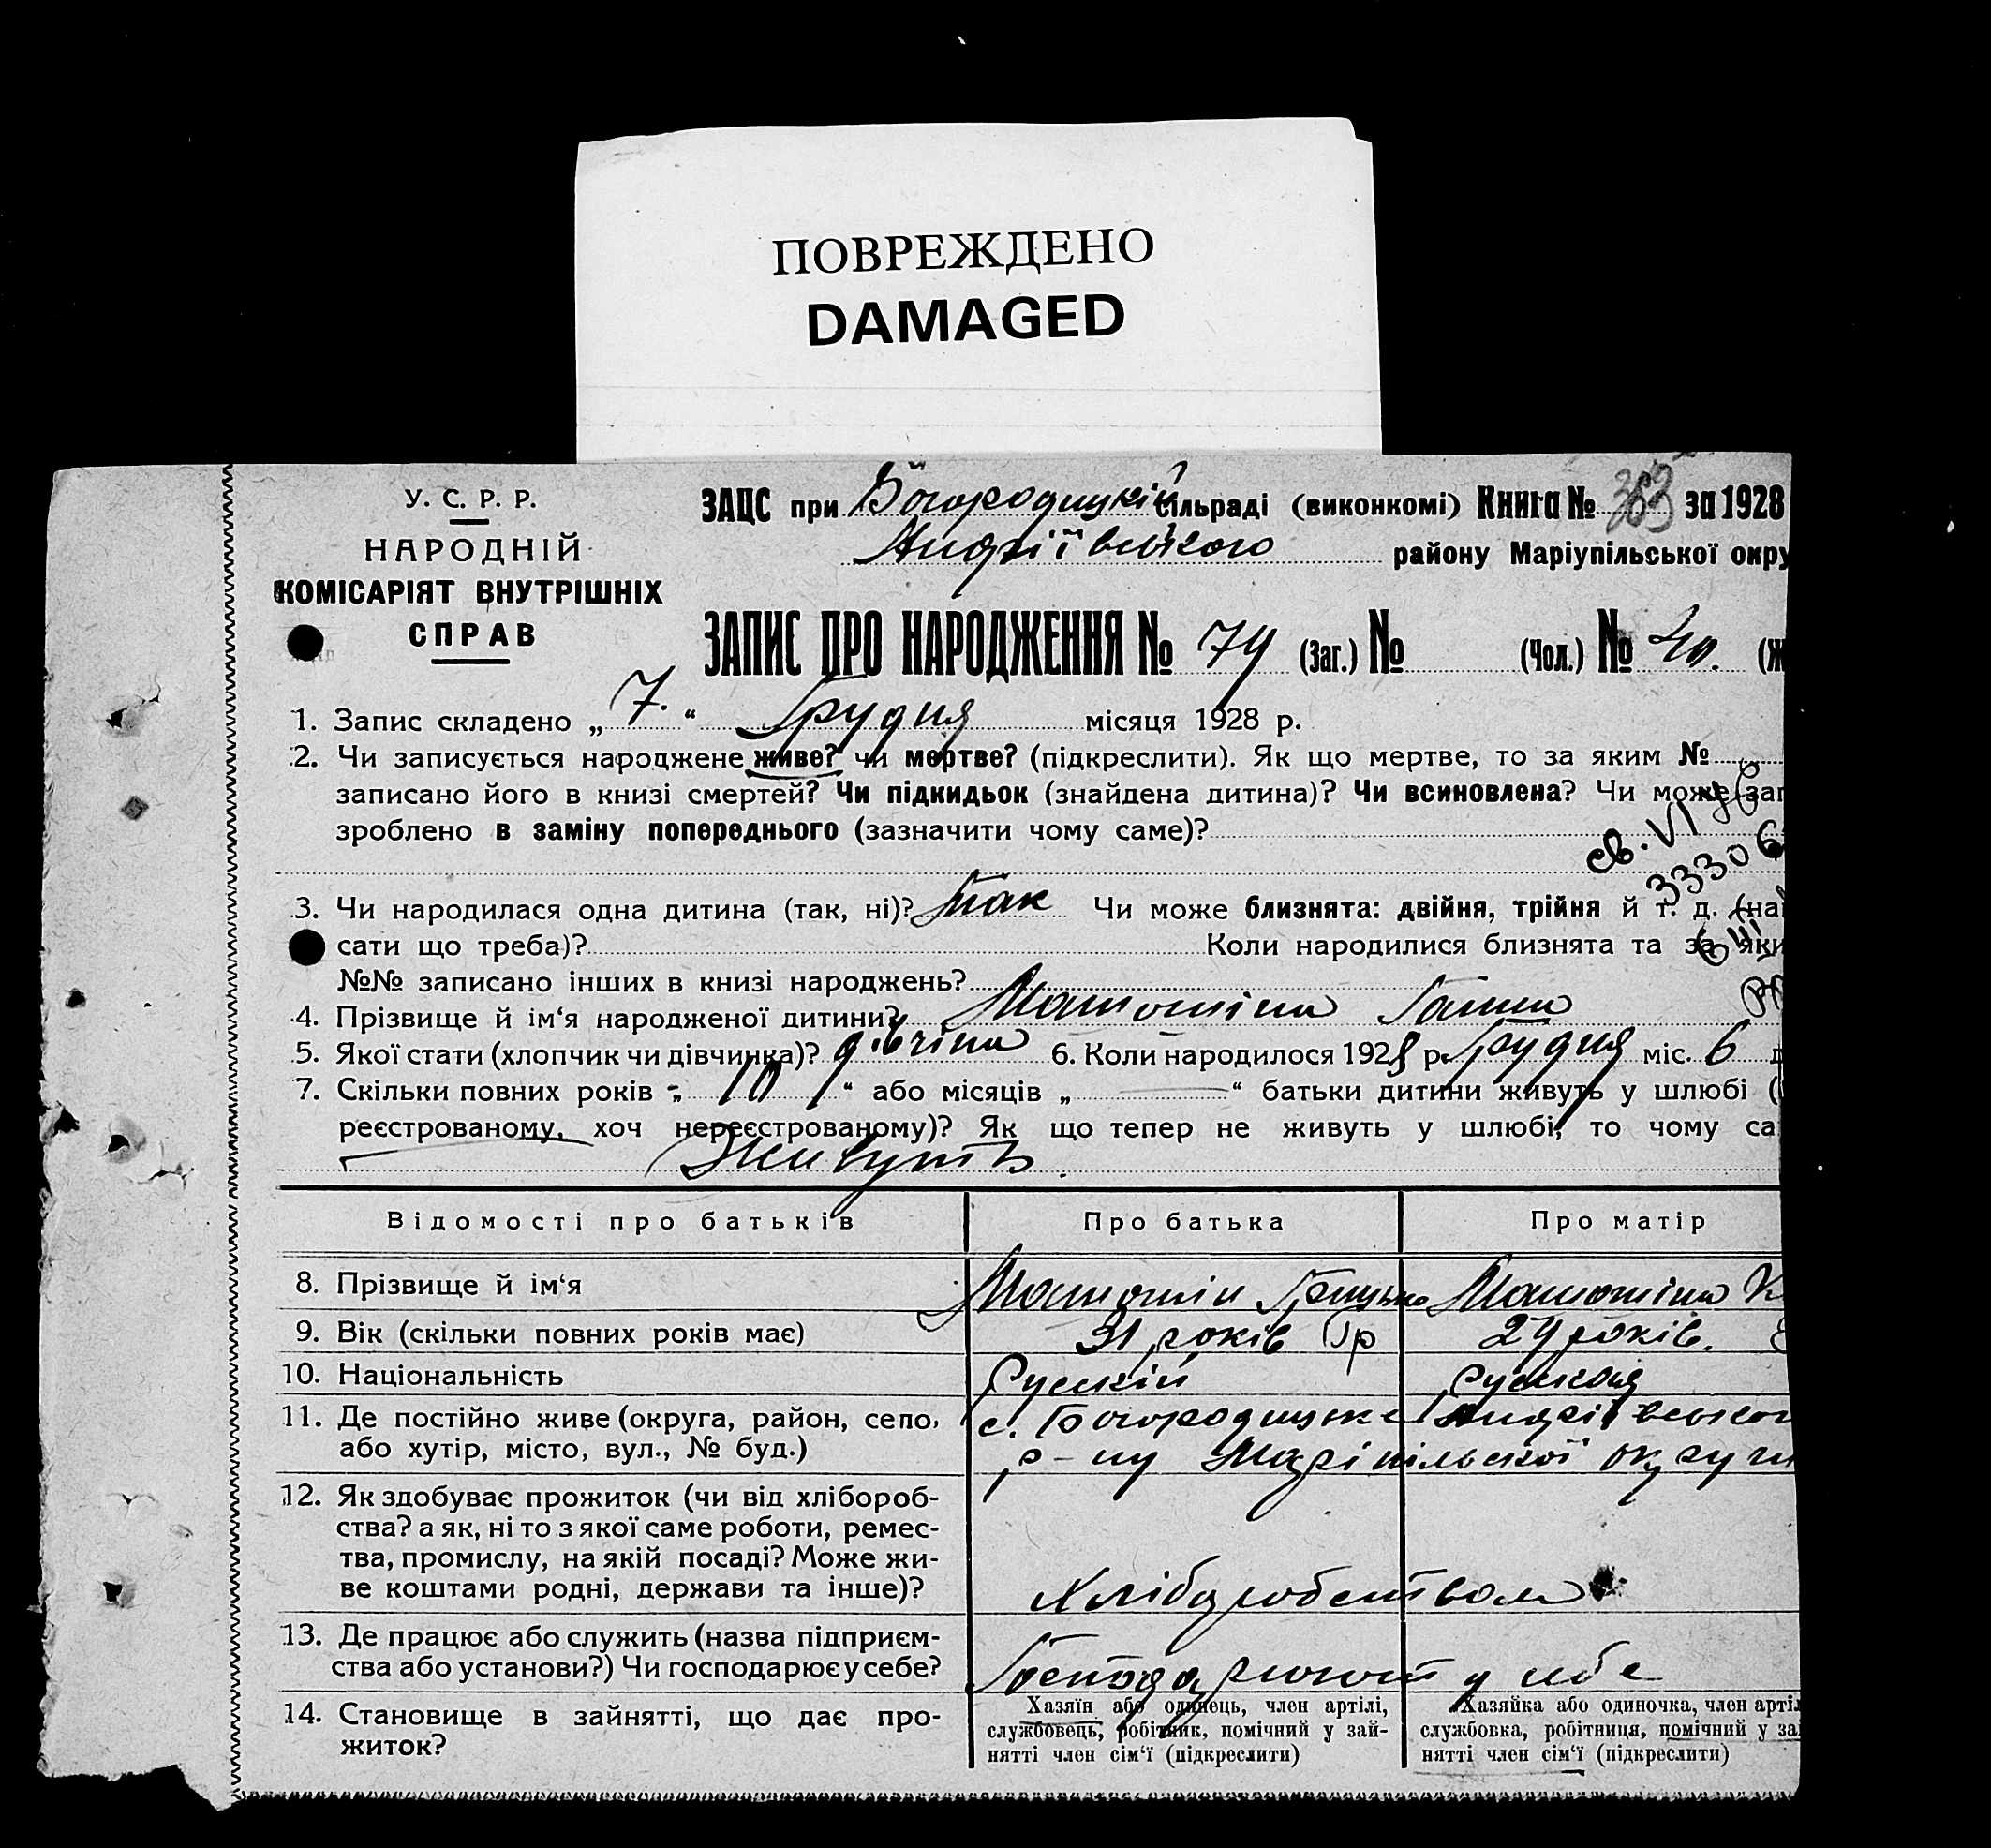 ПОВРЕЖДЕНО
DAMAGED
У. С. Р. Р.
НАРОДНІЙ
КОМІСАРІЯТ ВНУТРІШНІХ
СПРАВ
ЗАЦС при Богородицкій сільраді (виконкомі) Книга № 363 за 1928
Андріївського району Маріупільської окру
ЗАПИС ПРО НАРОДЖЕННЯ № 74 (Заг.) № (Чол.) № 40. (Ж
1. Запис складено „ 7. “ Грудня місяця 1928 р.
2. Чи записується народжене живе? чи мертве? (підкреслити). Як що мертве, то за яким №
записано його в книзі смертей? Чи підкидьок (знайдена дитина)? Чи всиновлена? Чи може зап
зроблено в заміну попереднього (зазначити чому саме)?
св. VI
33306
3. Чи народилася одна дитина (так, ні)? Так Чи може близнята: двійня, трійня й т. д. (на
сати що треба)? Коли народилися близнята та за яки
№№ записано інших в книзі народжень?
4. Прізвище й ім‘я народженої дитини? Матюшіна Ганна
5. Якої стати (хлопчик чи дівчинка)? дівчіна 6. Коли народилося 1928 р. Грудня міс. 6 д
7. Скільки повних років „ 10 “ або місяців „ — “ батьки дитини живуть у шлюбі (
реєстрованому, хоч нереєстрованому)? Як що тепер не живуть у шлюбі, то чому са
Живуть.
Відомості про батьків Про батька Про матір
8. Прізвище й ім‘я Матюшін Грицько Матюшіна К
9. Вік (скільки повних років має) 31 років Гр 29 років.
10. Національність Рускій Руская
11. Де постійно живе (округа, район, село, с. Богородицьке Андріївського
або хутір, місто, вул., № буд.) р-ну Маріпільської округи
12. Як здобуває прожиток (чи від хлібороб-
ства? а як, ні то з якої саме роботи, ремес-
тва, промислу, на якій посаді? Може жи-
ве коштами родні, держави та інше)? Хліборобством
13. Де працює або служить (назва підприєм-
ства або установи?) Чи господарює у себе? Господарюють у себе
14. Становище в зайнятті, що дає про-
житок?
Хазяїн або одинець, член артілі,
службовець, робітник, помічний у зай-
нятті член сім‘ї (підкреслити)
Хазяйка або одиночка, член артіл
службовка, робітниця, помічний у за
нятті член сім‘ї (підкреслити)